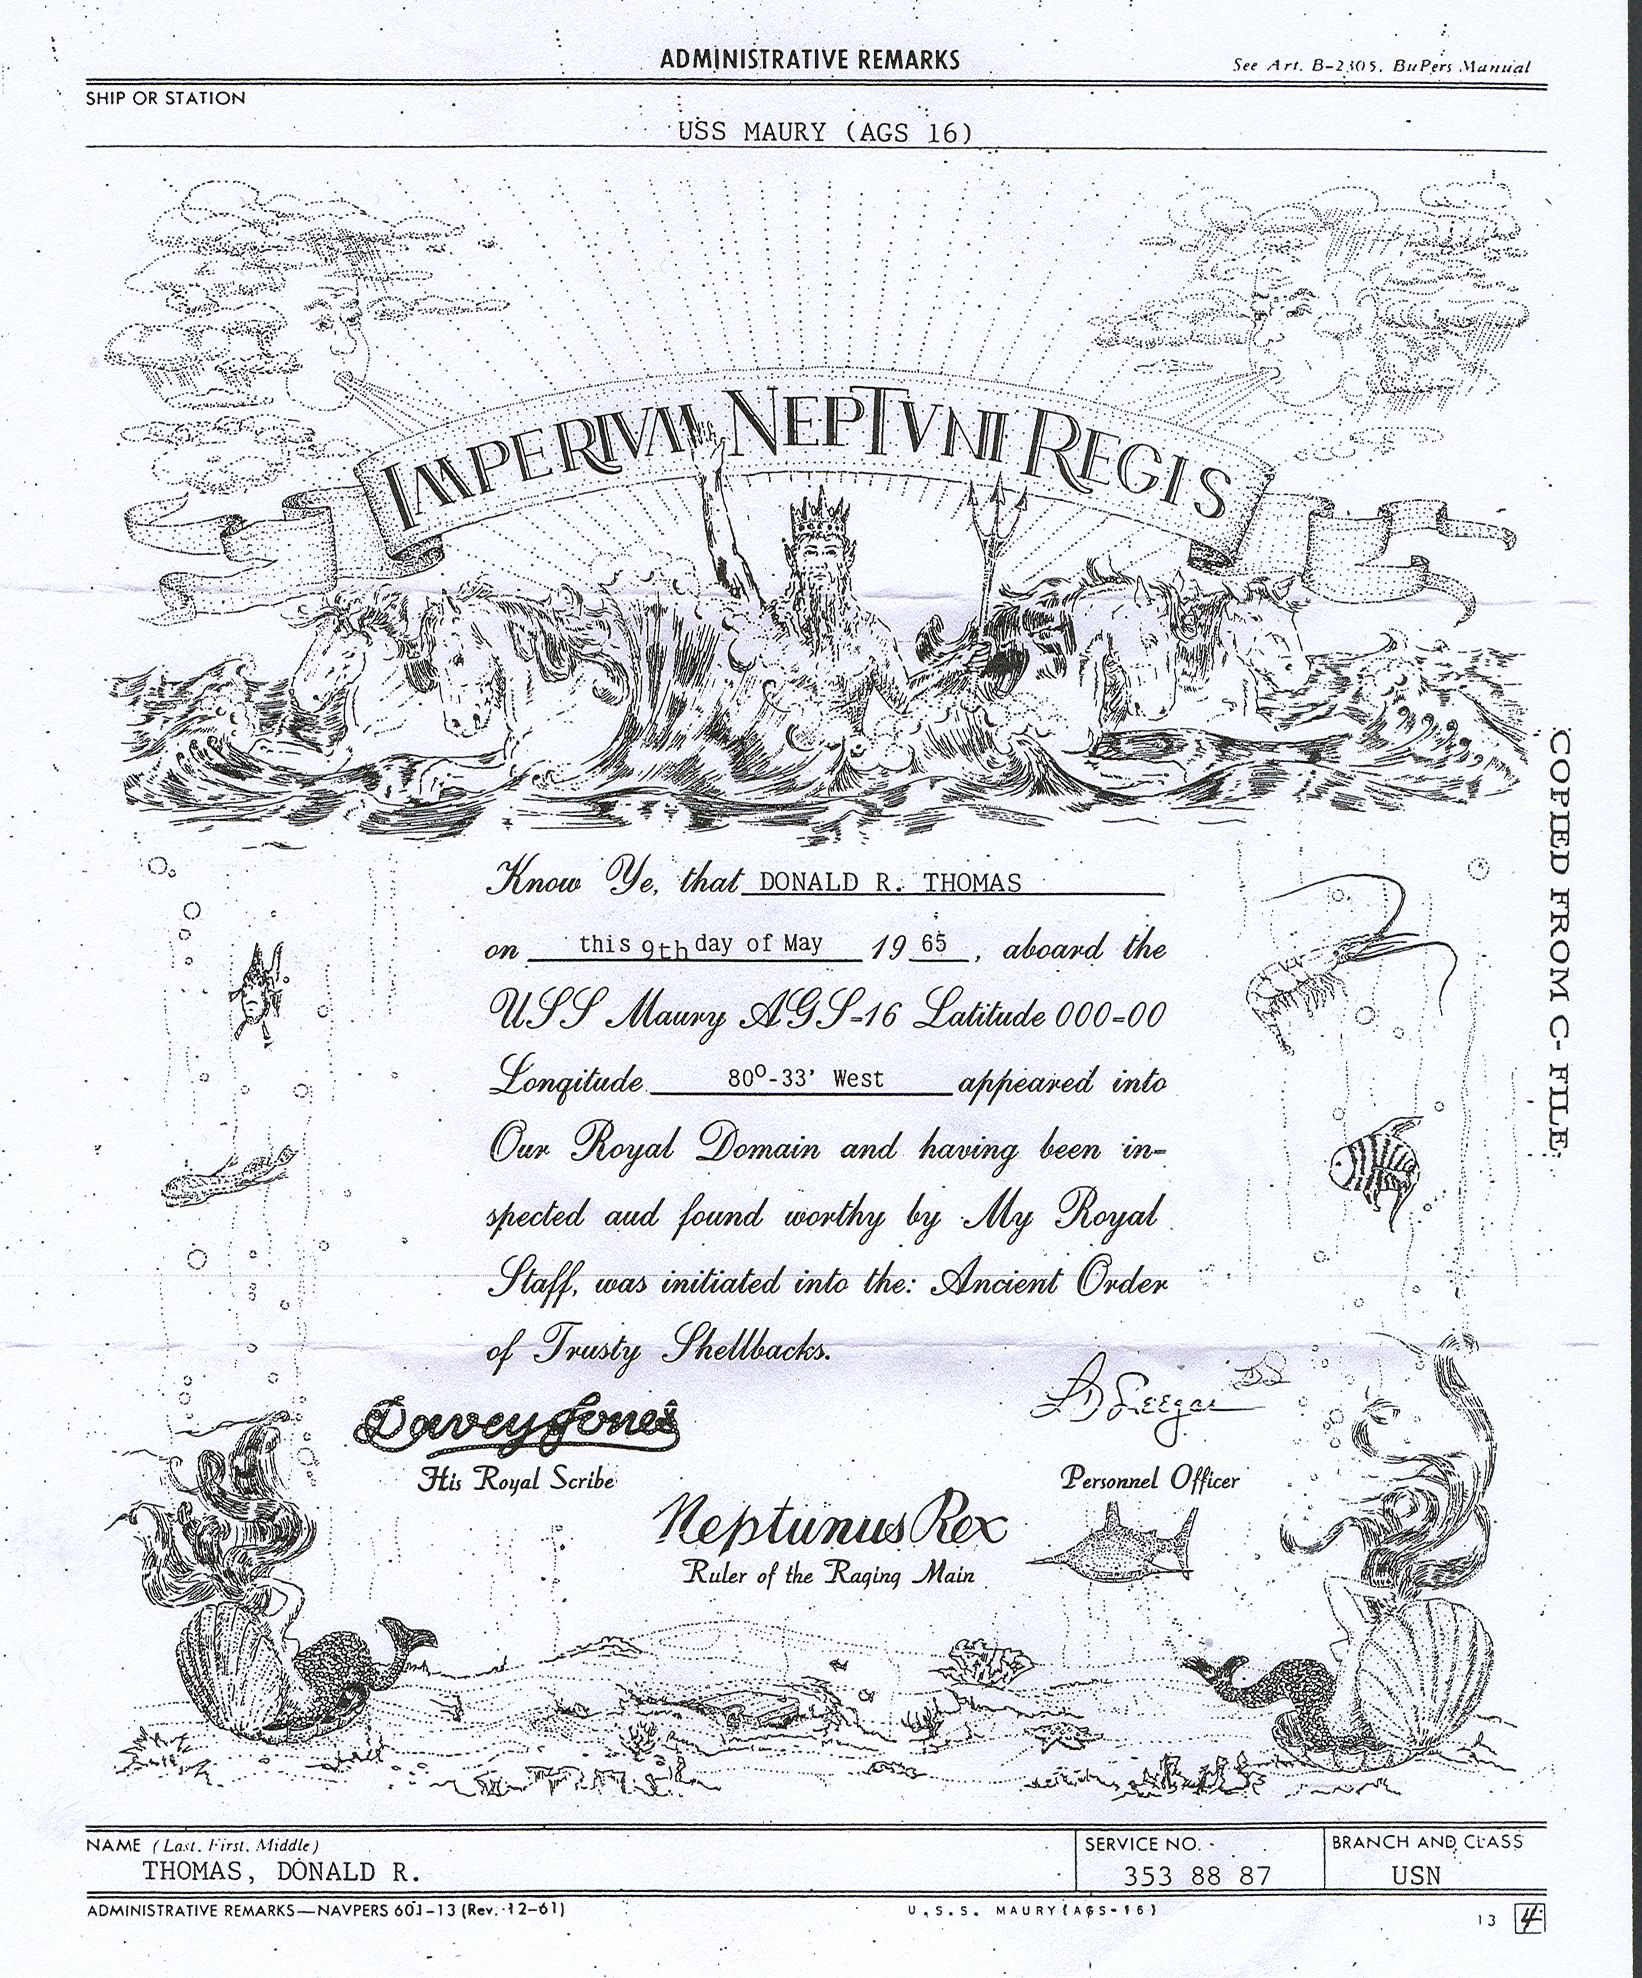 ADMINISTRATIVE REMARKS
See Art. B-2305, BuPers Manual
SHIP OR STATION
USS MAURY (AGS 16)
IMPERIVM NEPTVNI REGIS
Know Ye, that DONALD R. THOMAS
on this 9th day of May 19 65, aboard the
USS Maury AGS-16 Latitude 000-00
Longitude 80º-33' West appeared into
Our Royal Domain and having been in-
spected aud found worthy by My Royal
Staff, was initiated into the: Ancient Order
of Trusty Shellbacks.
Davey Jones
His Royal Scribe
Personnel Officer
Neptunus Rex
Ruler of the Raging Main
COPIED FROM C- FILE
NAME (Last, First, Middle)
THOMAS, DONALD R.
SERVICE NO.
353 88 87
BRANCH AND CLASS
USN
ADMINISTRATIVE REMARKS—NAVPERS 601-13 (Rev. 12-61)
U.S.S. MAURY (AGS-16)
13 4